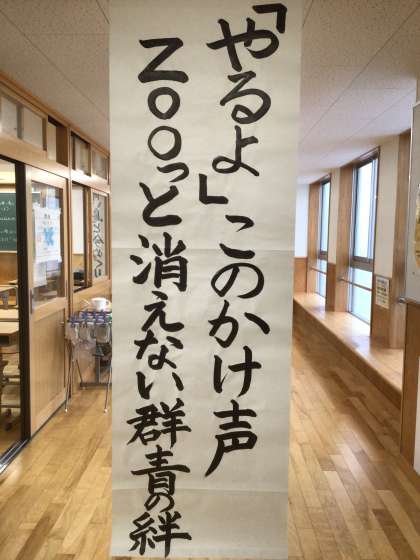 「やるよ」このかけ声
Zooっと消えない群青の絆